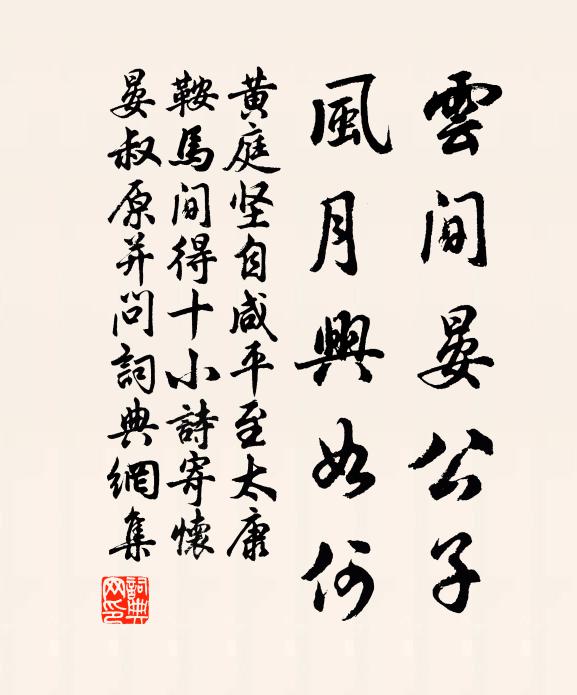 雲間晏公子
風月興如何
黄庭坚自咸平至太康
鞍馬間得十小詩寄懷
晏叔原并问詞典網集
詞典
网印